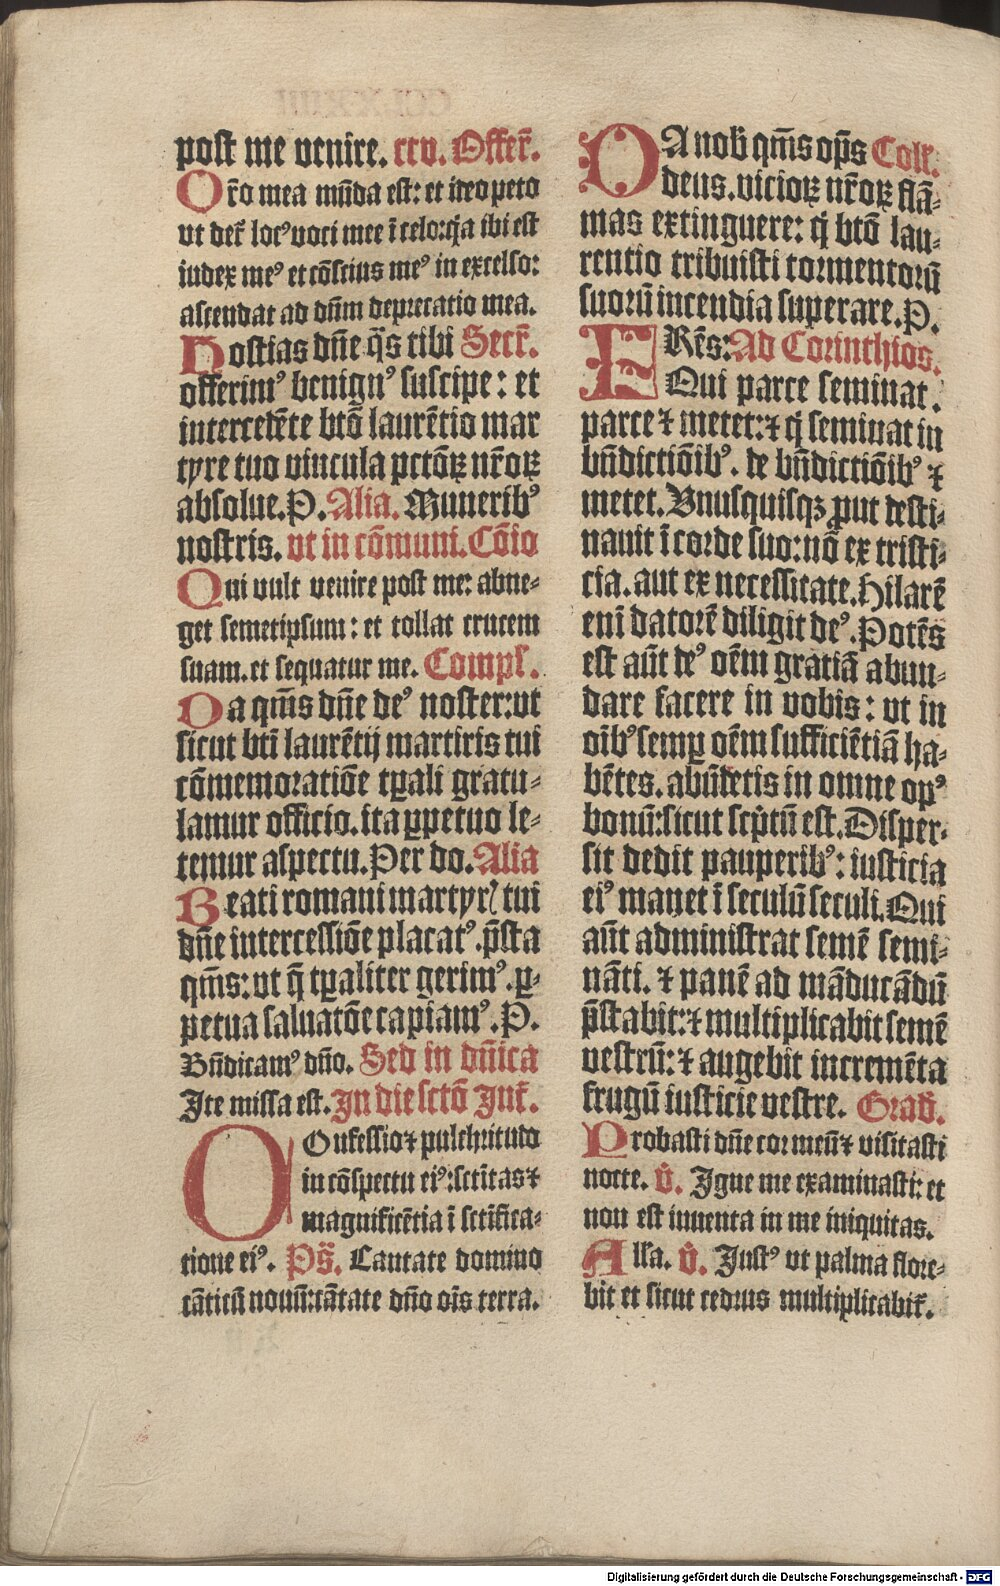 post me venire. ccv. Offer̄.
Or̄o mea mūda est: et ideo peto
vt det᷑ locꝰ voci mee ī celo: q̇a ibi est
iudex meꝰ et cōscius meꝰ in excelso:
ascendat ad dn̄m deprecatio mea.
Hostias dn̄e q̄s tibi Secr̄.
offerimꝰ benignꝰ suscipe: et
intercedēte btō laurētio mar
tyre tuo vincula pctōꝝ nr̄oꝝ
absolue. P. Alia. Muneribꝰ
nostris. vt in cōmuni. Cōio
Qui vult venire post me: abne⸗
get semetipsum: et tollat crucem
suam. et sequatur me. Compl̄.
Da qm̄s dn̄e deꝰ noster: vt
sicut bti̅ laurētij martiris tui
cōmemoratiōe tꝑali gratu⸗
lamur officio. ita ꝑpetuo le⸗
temur aspectu. Per do. Alia
Beati romani martyrꝭ tui
dn̄e intercessiōe placatꝰ. p̄sta
qm̄s: vt q̄ tꝑaliter gerimꝰ. ꝑ⸗
petua saluatōe capiamꝰ. P.
Bn̄dicamꝰ dn̄o. Sed in dn̄ica
Ite missa est. In die sctō Int᷑.
COnfessio ⁊ pulchritudo
in cōspectu eiꝰ: sctītas ⁊
magnificētia ī sctīfica⸗
tione eiꝰ. Ps̄. Cantate domino
cāticū nouū: cātate dn̄o oīs terra.
DA nob̄ qm̄s op̄s Coll̄.
deus. vicioꝝ nr̄oꝝ flā⸗
mas extinguere: q̇ btō lau⸗
rentio tribuisti tormentorū
suorū incendia superare. P.
FRēs: Ad Corinthios.
Qui parce seminat.
parce ⁊ metet: ⁊ q̇ seminat in
bn̄dictiōibꝰ. de bn̄dictiōibꝰ ⁊
metet. Vnusquisqꝫ ꝓut desti⸗
nauit ī corde suo: nō ex tristi⸗
cia. aut ex necessitate. Hilarē
eni̅ datorē diligit deꝰ. Potēs
est aūt deꝰ oēm gratiā abun⸗
dare facere in vobis: vt in
oībꝰ semꝑ oēm sufficiētiā ha⸗
bētes. abūdetis in omne opꝰ
bonū: sicut scp̄tū est. Disper⸗
sit dedit pauperibꝰ: iusticia
eiꝰ manet ī seculū seculi. Qui
aūt administrat semē semi⸗
nāti. ⁊ panē ad māducādū
p̄stabit: ⁊ multiplicabit semē
vestrū: ⁊ augebit incremēta
frugū iusticie vestre. Grad̄.
Probasti dn̄e cor meū ⁊ visitasti
nocte. v̄. Igne me examinasti: et
non est inuenta in me iniquitas.
All̄a. v̄. Iustꝰ vt palma flore⸗
bit et sicut cedrus multiplicabit᷑.
Digitalisierung gefördert durch die Deutsche Forschungsgemeinschaft - DFG